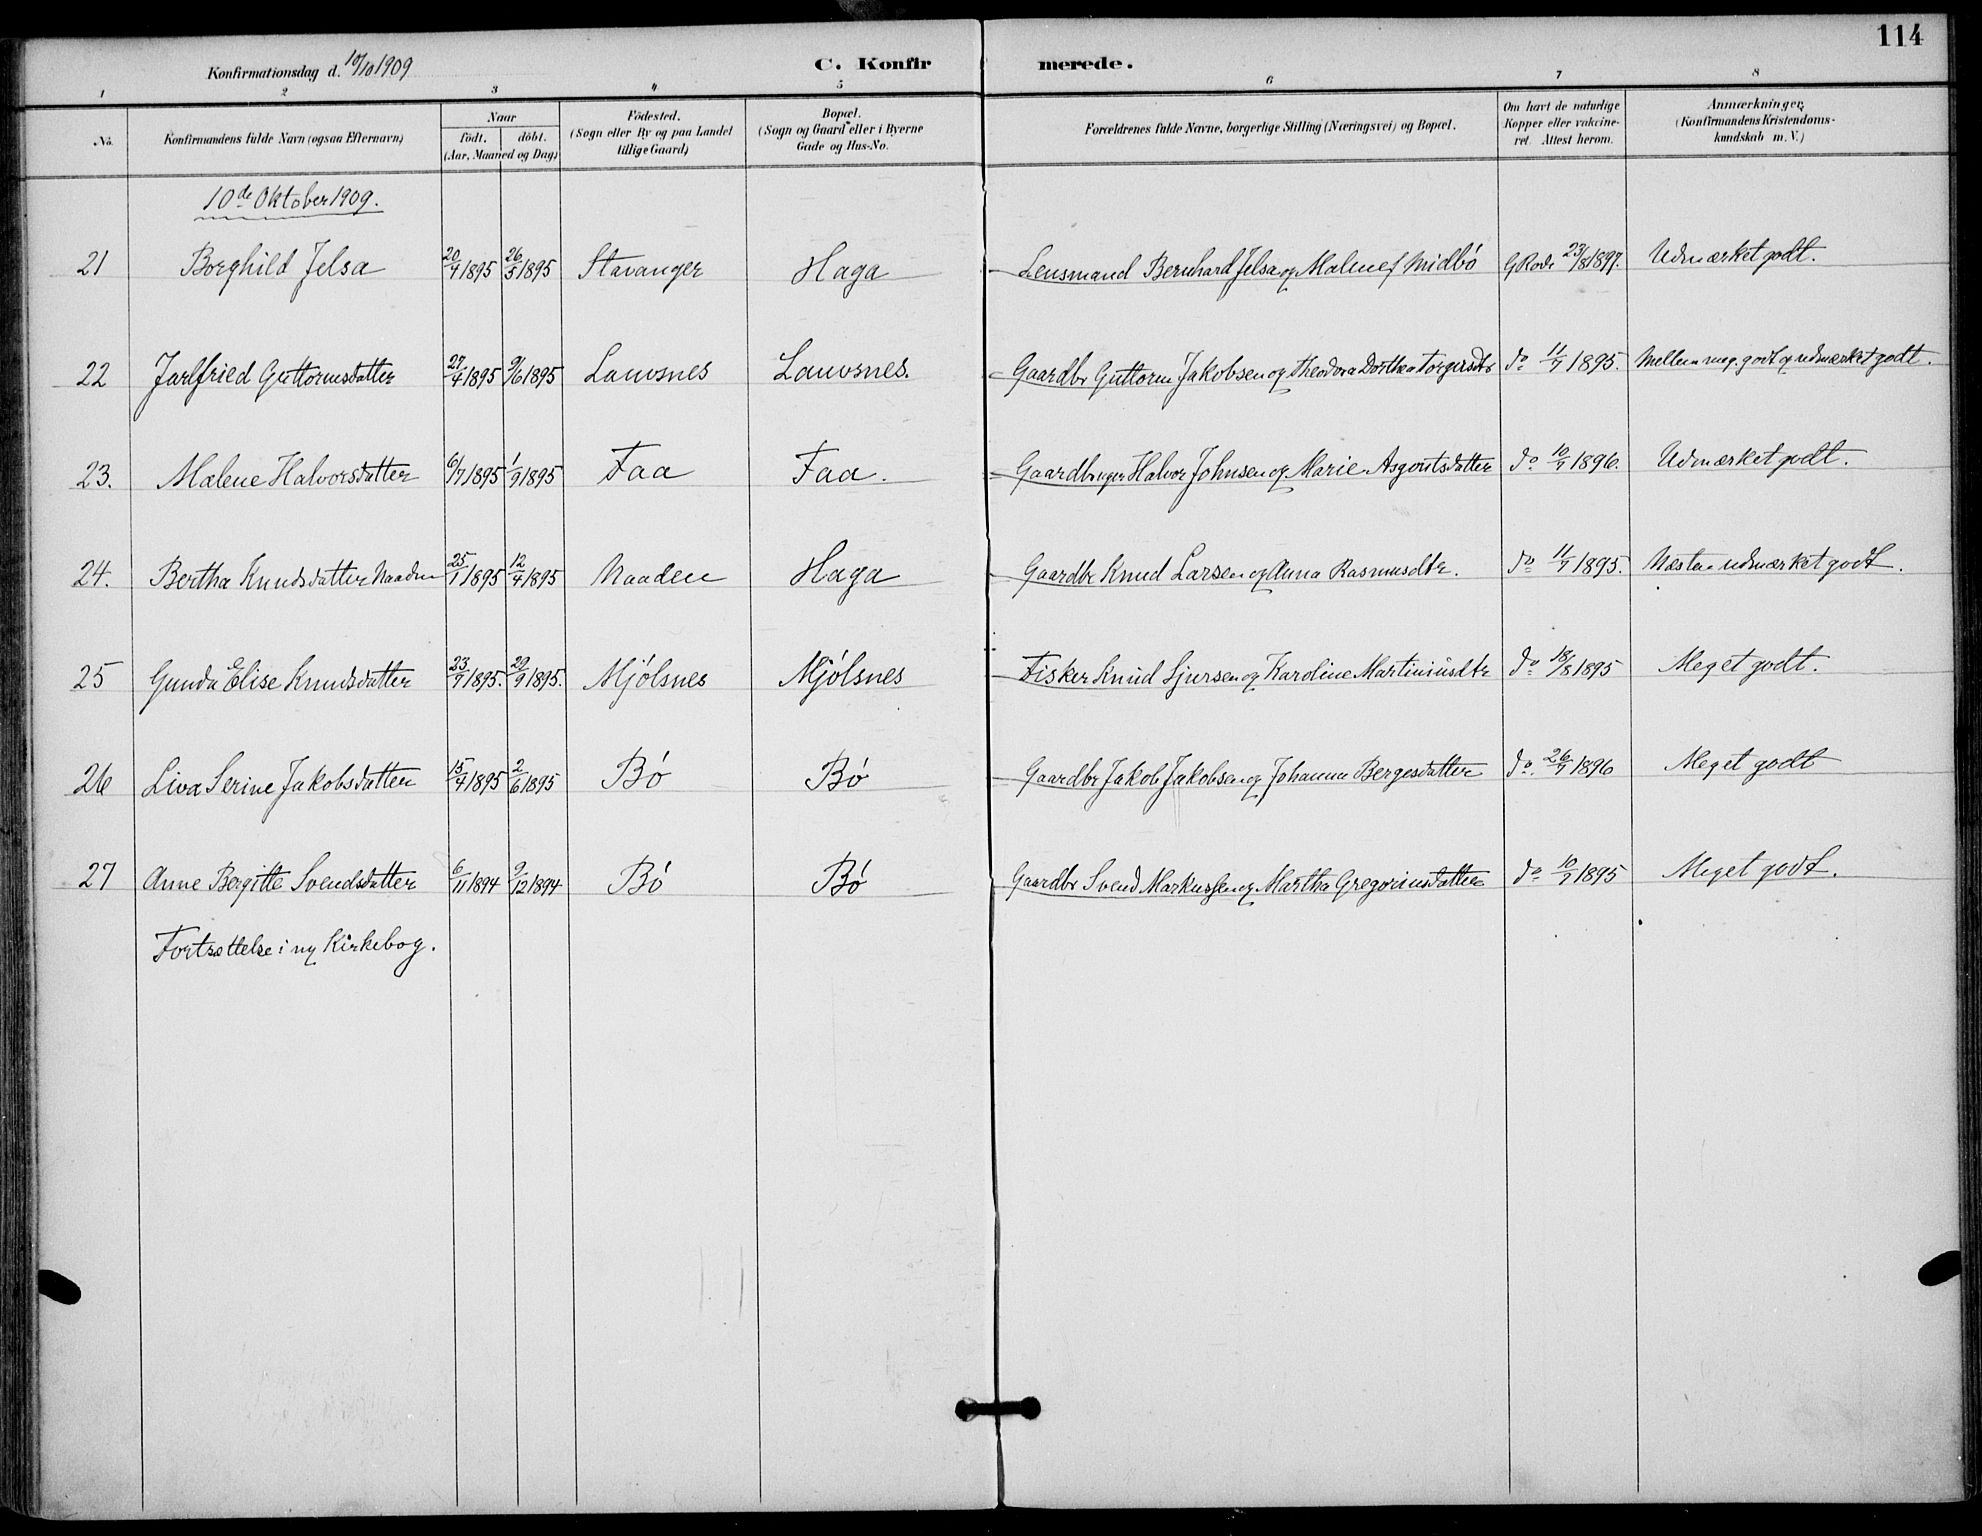 114
Konfirmationsdag d. 10/10 1909 C. Konfir merede.
1 2 3 4 5 6 7 8
No. Konfirmandens fulde Navn (ogsaa Efternavn) Naar födt. döbt. (Aar, Maaned og Dag) Födested. (Sogn eller By og paa Landet tillige Gaard) Bopæl. (Sogn og Gaard eller i Byerne Gade og Hus-No. Forældrenes fulde Navne, borgerlige Stilling (Næringsvei) og Bopæl. Om havt de naturlige Kopper eller vakcineret. Attest herom. Anmærkninger, (Konfirmandens Kristendomskundskab m. V.)
10de Oktober 1909.
21 Borghild Jelsa 20/4 1895 26/5 1895 Stavanger Haga Lensmand Bernhard Jelsa og Malene f Midbö G Rode 23/8 1897. Udmærket godt.
22 Jarlfried Guttormsdatter 27/4 1895 9/6 1895 Lauvsnes Lauvsnes. Gaardbr Guttorm Jakobsen og Theodora Dorthea Torgersdtr do 11/7 1895. Mellem meg. godt og udmærket godt.
23. Malene Halvorsdatter 6/7 1895 1/9 1895 Faa Faa. Gaardbruger Halvor Johnsen og Marie Asgoutsdatter do 10/7 1896. Udmærket godt.
24. Bertha Knudsdatter Naaden 25/1 1895 12/4 1895 Naaden Haga Gaardbr Knud Larsen og Anna Rasmusdtr. do 11/7 1895. Næsten udmærket godt.
25 Gunda Elise Knudsdatter 23/7 1895. 29/9 1895. Mjölsnes Mjölsnes Fisker Knud Sjursen og Karoline Martiniusdtr do 18/8 1895 Meget godt.
26 Liva Serine Jakobsdatter 15/4 1895 2/6 1895 Bö Bö Gaardbr Jakob Jakobsen og Johanna Bergesdatter do. 26/7 1896 Meget godt
27 Anne Bergitte Svendsdatter 6/11 1894 9/12 1894 Bö Bö Gaardbr Svend Markussen og Martha Gregoriusdatter do 10/7 1895 Meget godt.
Fortsættelse i ny Kirkebog.